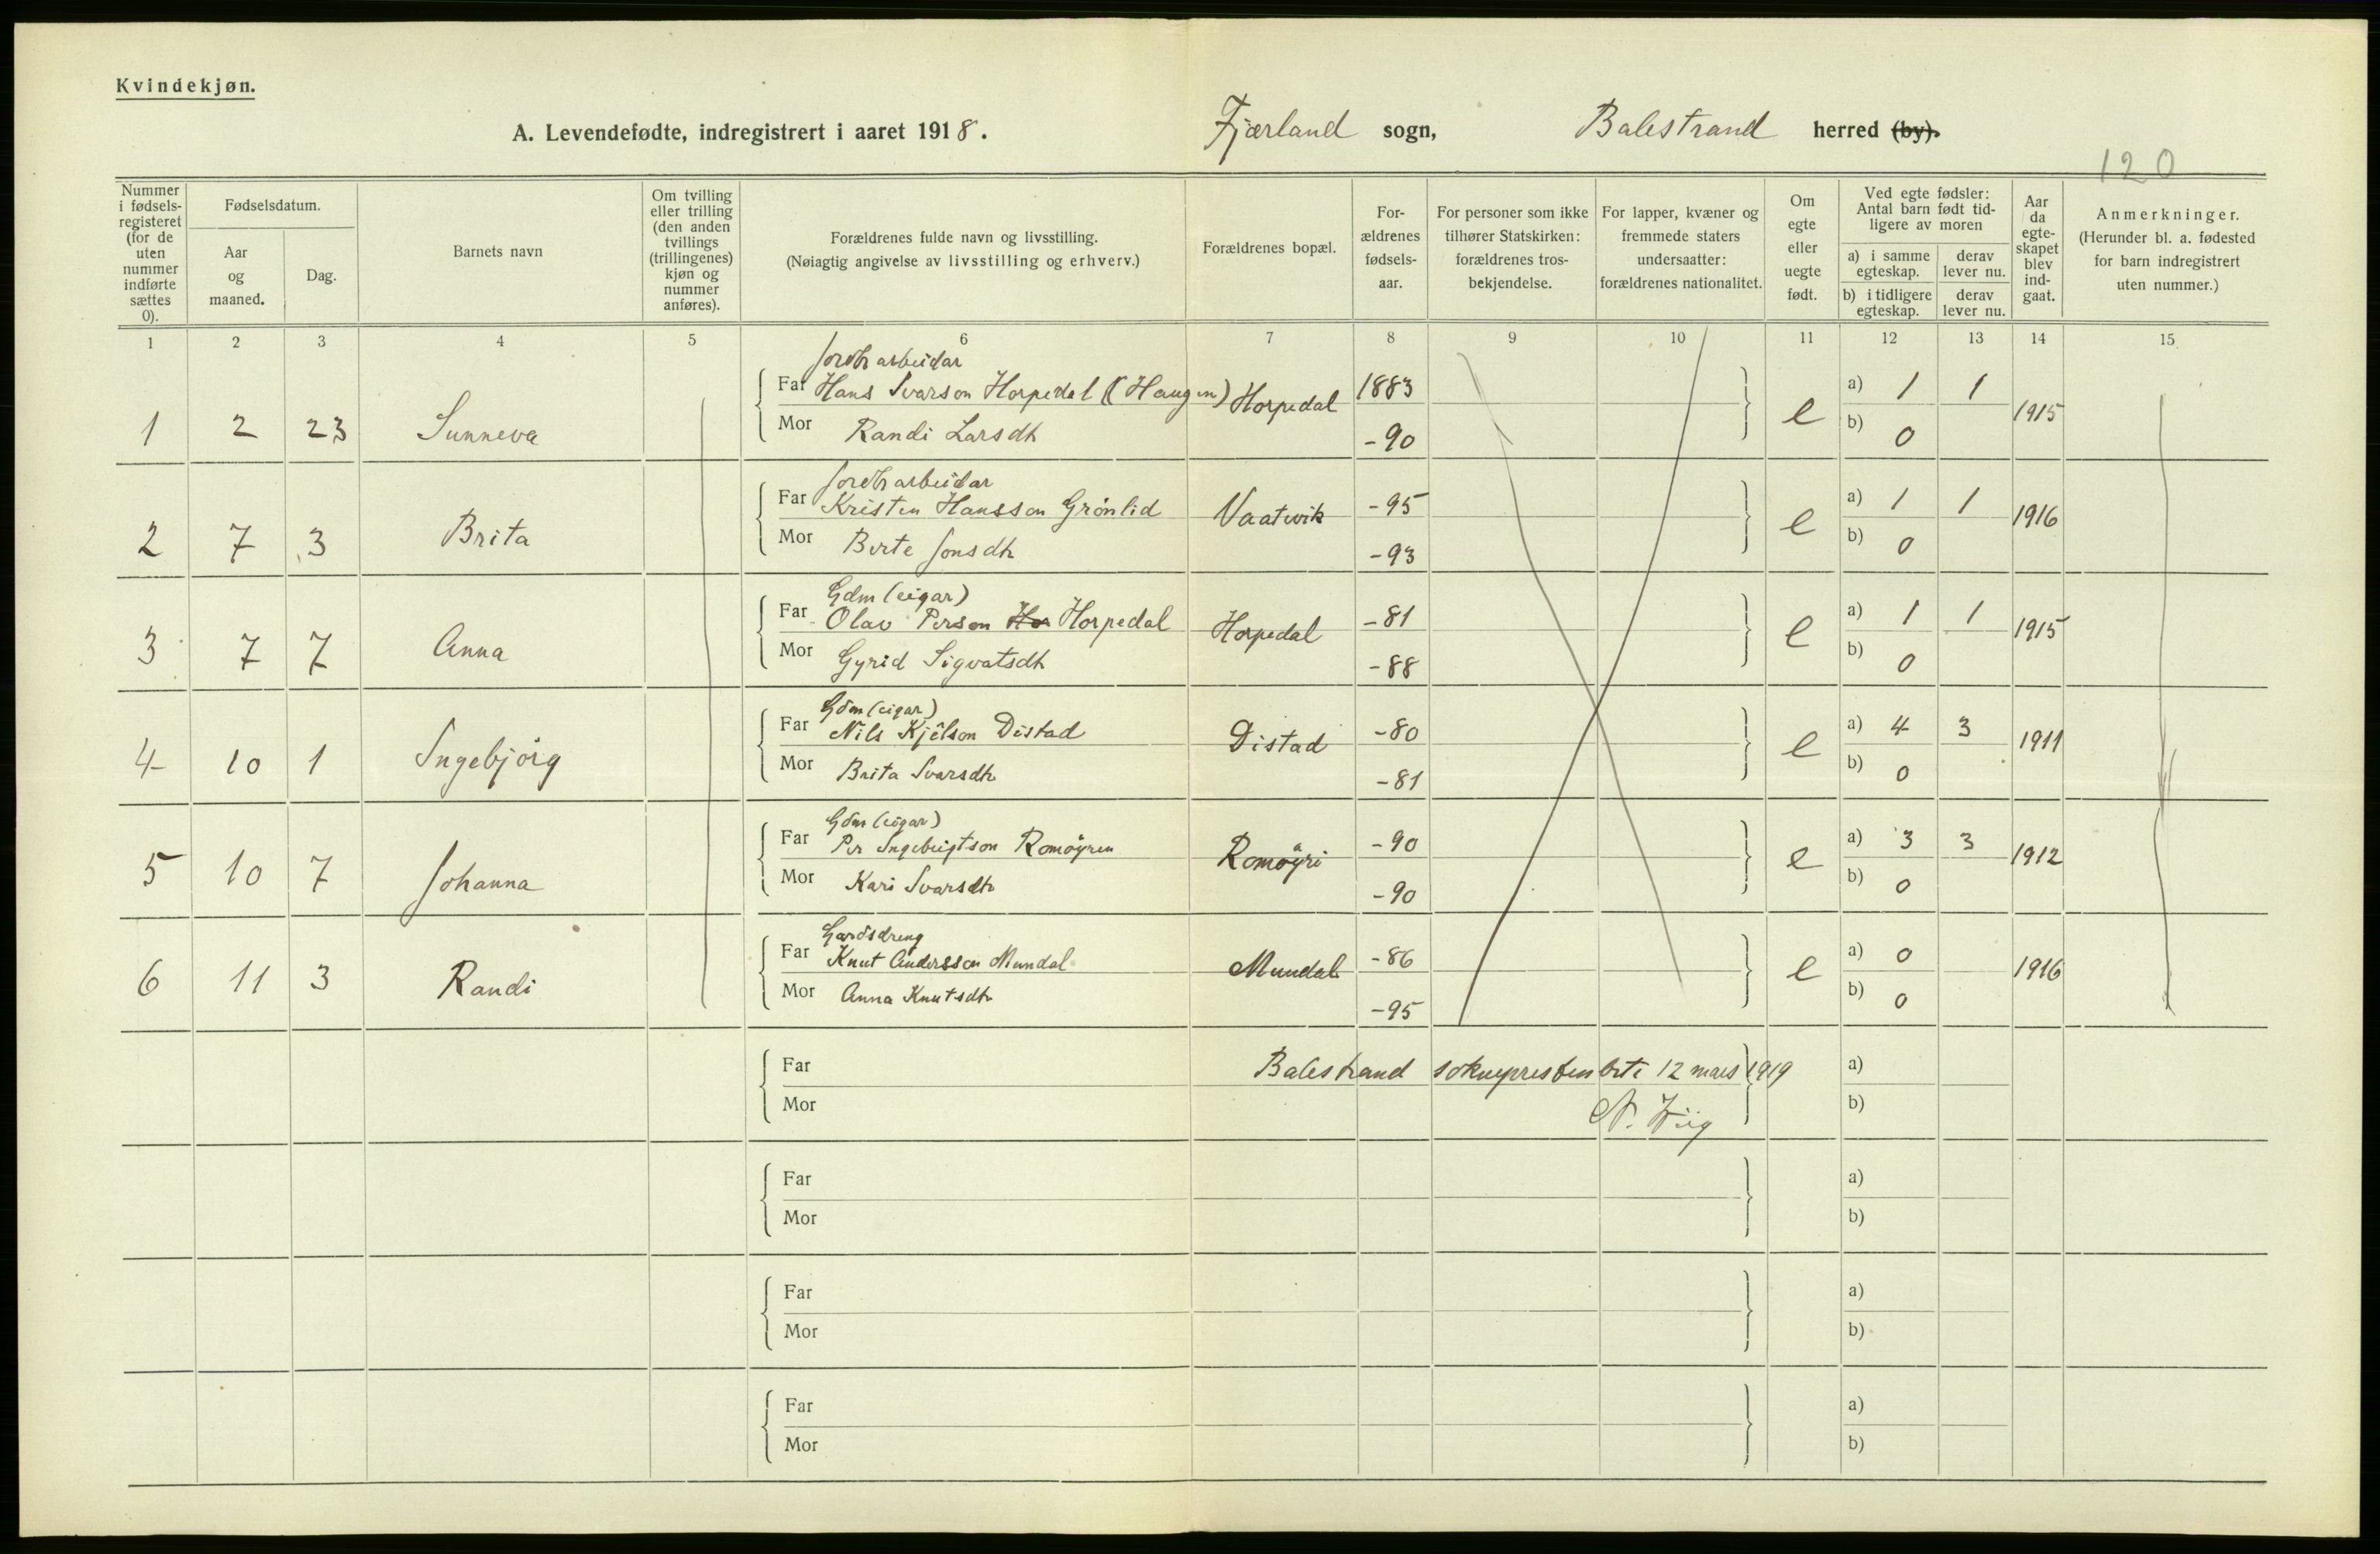 Kvindekjøn.
A. Levendefødte, indregistrert i aaret 1918.
Fjærland sogn, Balestrand herred (by).
120
Nummer i fødsels-registeret (for de uten nummer indførte sættes 0).
Fødselsdatum.
Aar og maaned.
Dag.
Barnets navn
Om tvilling eller trilling (den anden tvillings (trillingenes) kjøn og nummer anføres).
Forældrenes fulde navn og livsstilling.
(Nøiagtig angivelse av livsstilling og erhverv.)
Forældrenes bopæl.
For-ældrenes fødsels-aar.
For personer som ikke tilhører Statskirken: forældrenes tros-bekjendelse.
For lapper, kvæner og fremmede staters undersaatter: forældrenes nationalitet.
Om egte eller uegte født.
Ved egte fødsler: Antal barn født tid-ligere av moren
a) i samme egteskap.
derav lever nu.
b) i tidligere egteskap.
derav lever nu.
Aar da egte-skapet blev ind-gaat.
Anmerkninger.
(Herunder bl. a. fødested for barn indregistrert uten nummer.)
1 2 3 4 5 6 7 8 9 10 11 12 13 14 15
Jordbr arbeidar
Far Hans Ivarson Horpedal (Haugen) Horpedal 1883 a) 1 1
1 2 23 Sunneva e 1915
Mor Randi Larsdtr -90 b) 0
Jordbr arbeidar
Far Kristen Hansson Grönlid Vaatevik -95 a) 1 1
2 7 3 Brita e 1916
Mor Berte Jonsdtr -93 b) 0
Gdm (eigar)
Far Olav Person Hor Horpedal Horpedal -81 a) 1 1
3 7 7 Anna e 1915
Mor Gyrid Sigvatsdtr -88 b) 0
Gdm (eigar)
Far Nils Kjelson Distad Distad -80 a) 4 3
4 10 1 Ingebjörg e 1911
Mor Brita Ivarsdtr -81 b) 0
Gdm (eigar)
Far Per Ingebrigtson Romöyren Romöyri -90 a) 3 3
5 10 7 Johanna e 1912
Mor Kari Ivarsdtr -90 b) 0
Gardsdreng
Far Knut Andersson Mundal Mundal -86 a) 0
6 11 3 Randi e 1916
Mor Anna Knutsdtr -95 b) 0
Far Balestrand sokneprestembete 12 mars 1919 a)
Mor N. Wiig b)
Far a)
Mor b)
Far a)
Mor b)
Far a)
Mor b)